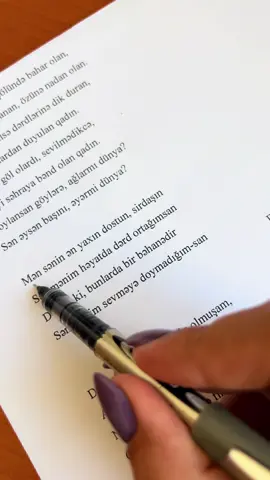 gölündə bahar olan,
anan, özünə nadan olan.
sə dərdlərinə dik duran,
lardan duyulan qadın.
göl olardı, sevilmədikcə,
i səhraya bənd olan qadın.
oylansan göylərə, ağlarmı dünya?
Sən əysən başını, əyərmi dünya?
Mən sənin ən yaxın dostun, sirdaşın
Sə mənim həyatda dərd ortağımsan
D ki, bunlarda bir bəhanədir
Sən im sevməyə doymadığım-san
olmuşam,